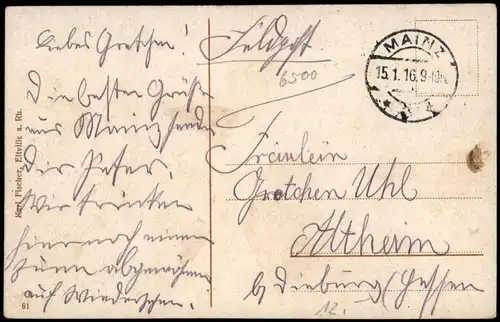 Liebes Gretchen!
Die besten Grüße
aus Mainz sendet
Dir Peter.
Wir trinken
hiernach einen
zum abgewöhnen
auf Wiedersehen.
Karl Fischer, Eltville a. Rh.
81
Feldpost
6500
MAINZ
15.1.16. 9-10V.
Fräulein
Gretchen Uhl
Altheim
b/ Dieburg (Hessen
12.-